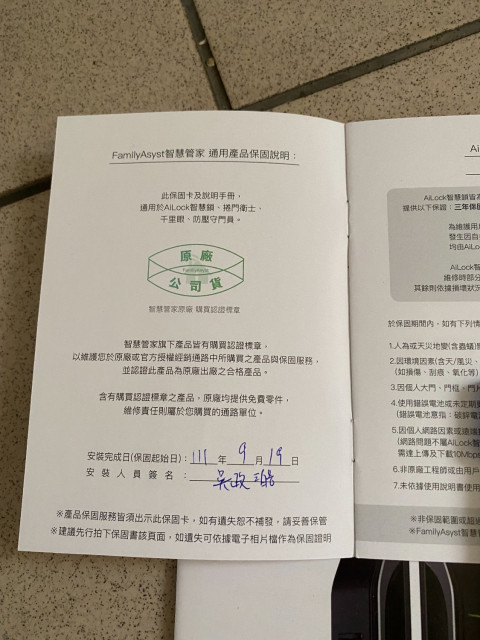 FamilyAsyst智慧管家 通用產品保固說明：
此保固卡及說明手冊，
適用於AiLock智慧鎖、捲門衛士、
千里眼、防壓守門員。
原廠
FamilyAsyst
公司貨
智慧管家原廠 購買認證標章
智慧管家旗下產品皆有購買認證標章，
以維護您於原廠或官方授權經銷通路中所購買之產品與保固服務，
並認證此產品為原廠出廠之合格產品。
含有購買認證標章之產品，原廠均提供免費零件，
維修責任則屬於您購買的通路單位。
安裝完成日(保固起始日)：111年9月19日
安裝人員簽名：吳政
※產品保固服務皆須出示此保固卡，如有遺失恕不補發，請妥善保管
※建議先行拍下保固書該頁面，如遺失可依據電子相片檔作為保固證明
Ai
AiLock智慧鎖皆為
提供以下保證：三年保固
為維護用戶
發生因自
均由AiLoc
AiLock智
維修時部分
其餘則依據損壞狀況
於保固期間內，如有下列情
1.人為或天災地變(含蟲蟻)
2.因環境因素(含天/風災、
（如損傷、刮痕、氧化等）
3.因個人大門、門框、門片
4.使用錯誤電池或未定期
（錯誤電池意指：碳鋅電
5.因個人網路因素或遠端
（網路問題不屬AiLock智
需達上傳及下載10Mbps
6.非原廠工程師或由用戶
7.未依據使用說明書使用
※非保固範圍或超過
※FamilyAsyst智慧